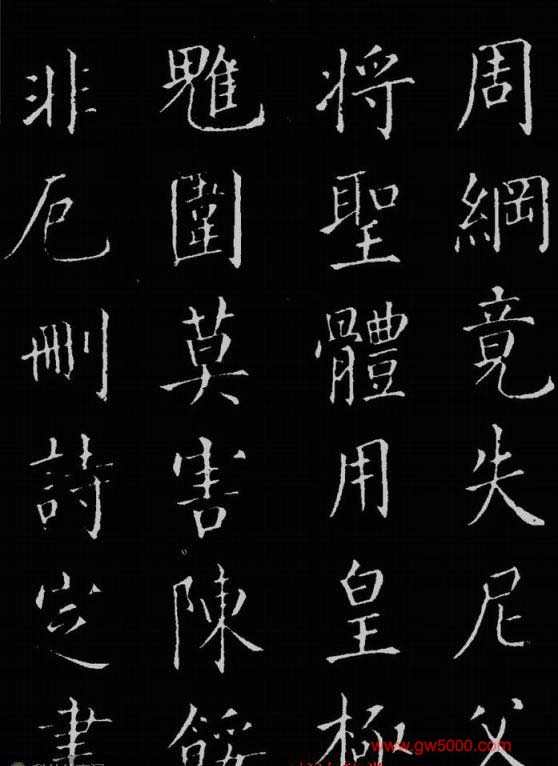 周綱竟失尼父
将聖體用皇極
魋圍莫害陳餒
非厄刪詩定書
www.gw5000.com